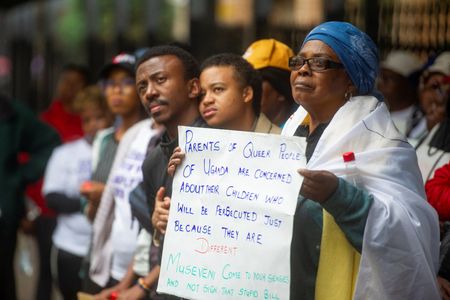 PARENTS OF QUEER PEOPLE
OF UGANDA ARE CONCERNED
ABOUT THEIR CHILDREN WHO
WILL BE PERSECUTED JUST
BECAUSE THEY ARE
DIFFERENT
MUSEVENI COME TO YOUR SENSES
AND NOT SIGN THAT STUPID BILL